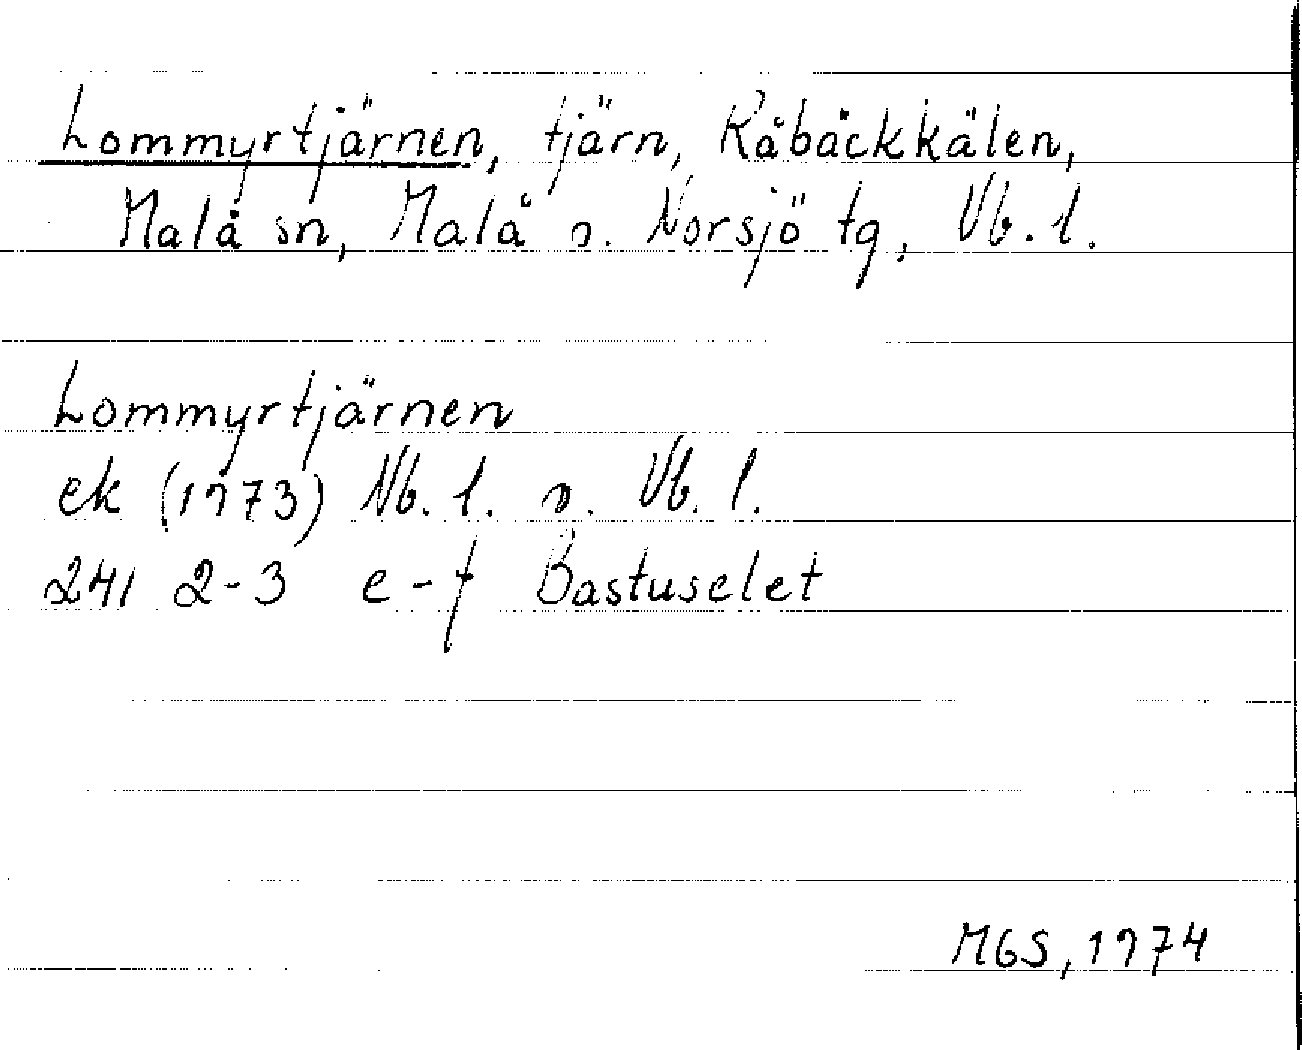 Lommyrtjärnen, tjärn, Råbäckkälen,
Malå sn, Malå o. Norsjö tg, Vb. l.
Lommyrtjärnen
ek (1973) Nb. l. o. Vb. l.
241 2-3 e-f Bastuselet
MGS, 1974